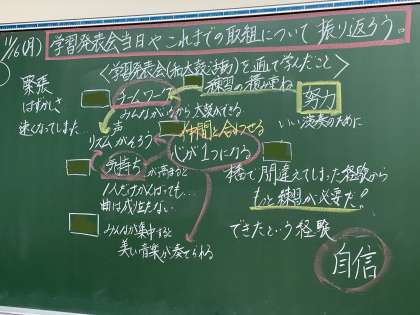 11/6(月)
学習発表会当日やこれまでの取組について振り返ろう。
〈学習発表会(和太鼓活動)を通して学んだこと〉
緊張
はずかしさ
速くなってしまた
チームワーク
みんながいるから太鼓ができる
声
リズムがそろう
気持ちが高まると
1人だけががんばっても…
曲は成立たない
みんなが集中すると
美い音楽が奏でられる
練習の積み重ね
仲間と合わせる
心が1つになる
努力
いい演奏のために
間違えてしまった経験から
もっと練習が必要だ!
できたという経験
自信